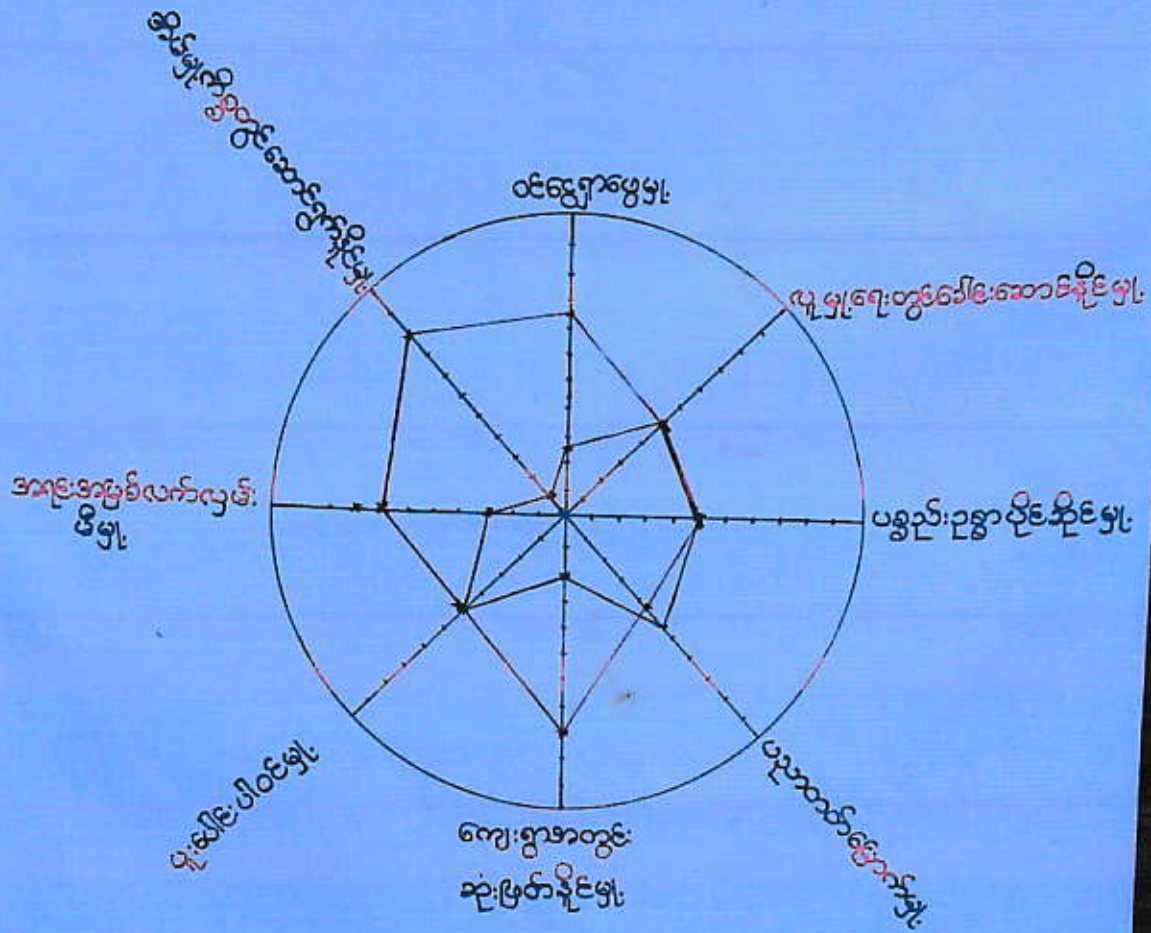 အိမ်မှုကိစ္စတွင်ဆောင်ရွက်နိုင်မှု
ဝင်ငွေရှာဖွေမှု
လူမှုရေးတွင်ခေါင်းဆောင်နိုင်မှု
ပစ္စည်းဥစ္စာပိုင်ဆိုင်မှု
ပညာတတ်မြောက်မှု
ကျေးရွာအတွင်း
ဆုံးဖြတ်နိုင်မှု
ပူးပေါင်းပါဝင်မှု
အရင်းအမြစ်လက်လှမ်း
မီမှု